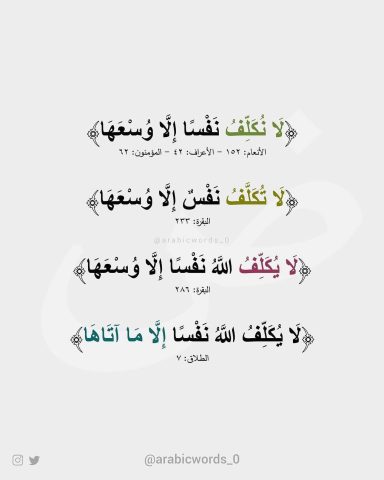 ﴿لَا نُكَلِّفُ نَفْسًا إِلَّا وُسْعَهَا﴾
الأنعام: ١٥٢ - الأعراف: ٤٢ - المؤمنون: ٦٢
﴿لَا تُكَلَّفُ نَفْسٌ إِلَّا وُسْعَهَا﴾
البقرة: ٢٣٣
@arabicwords_0
﴿لَا يُكَلِّفُ اللَّهُ نَفْسًا إِلَّا وُسْعَهَا﴾
البقرة: ٢٨٦
﴿لَا يُكَلِّفُ اللَّهُ نَفْسًا إِلَّا مَا آتَاهَا﴾
الطلاق: ٧
@arabicwords_0